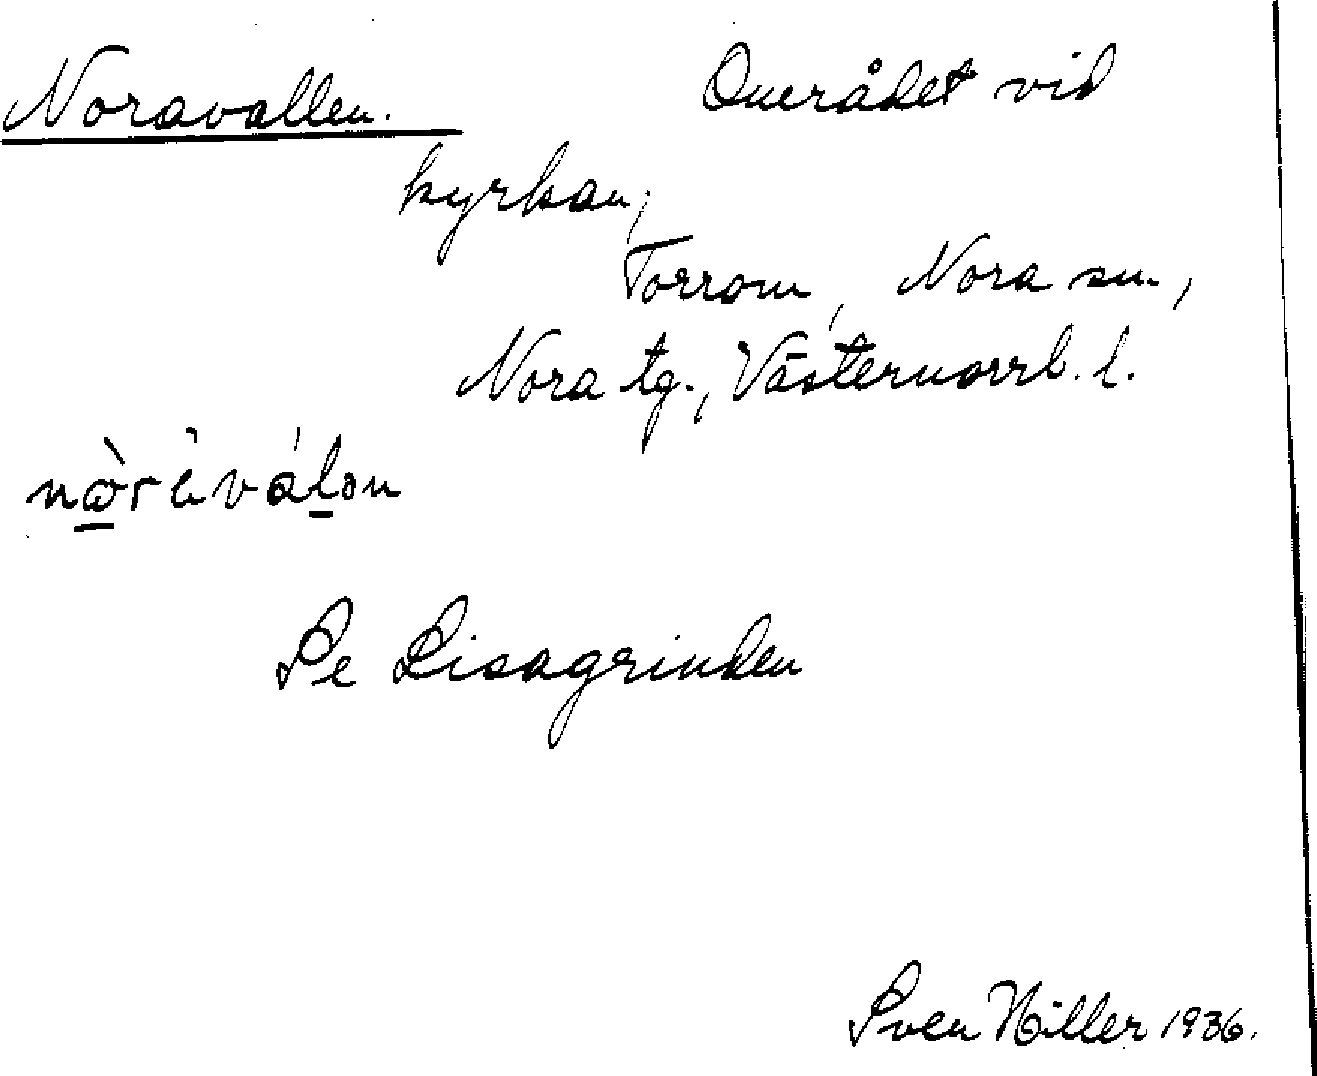 Noravallen. Området vid
kyrkan,
Torrom, Nora sn.,
Nora tg., Västernorrl. l.
Se Lisagrinden
Sven Hiller 1936.